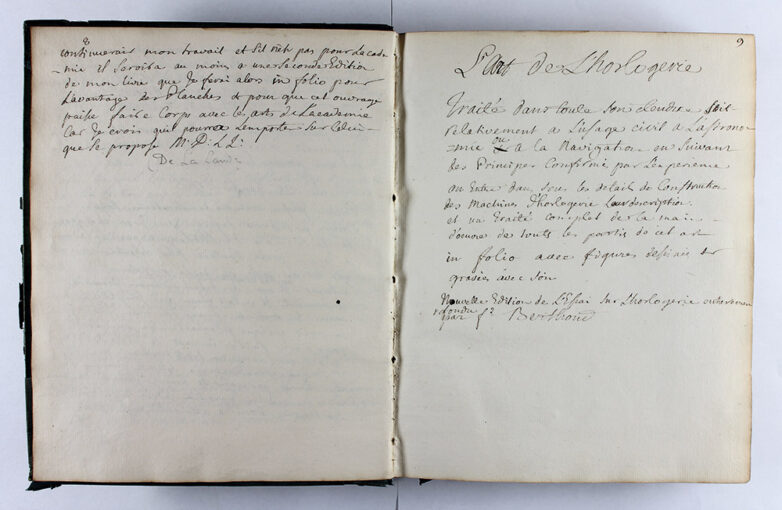 8
continuerait mon travail et s'il n'est pas pour L'acade
-mie il servira au moins a une seconde Edition
de mon livre que Je ferai alors in folio pour
L'avantage des Planches et pour que cet ouvrage
puisse faire Corps avec les arts de L'academie
Car Je crois qu'il pourra L'emporter sur Celui
que se propose Mr. D. L. L.
(De La Lande
9
L'Art de L'horlogerie
Traité dans toute son Etendue soit
relativement a L'usage civil a L'astrono
=mie ou a la Navigation en suivant
des Principes Confirmés par L'experience
on Entre dans tous les details de Construction
des Machines d'horlogerie Leur description
et un traité complet de la main
d'œuvre de toutes les parties de cet art
in folio avec figures dessinées et
gravées avec soin
Nouvelle Edition de L'Essai sur L'horlogerie entierement
refondu
par fd. Berthoud